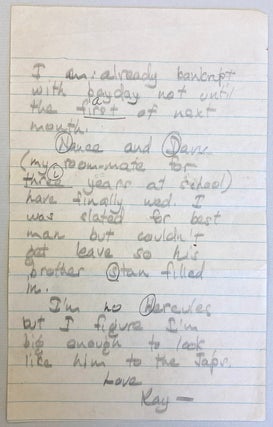 I am already bankrupt
with payday not until
the first of next
month.
and Dave
(my room-mate for
three years at school)
have finally wed. I
was slated for best
man but couldn't
get leave so his
brother Stan filled
in.
I'm no Hercules
but I figure I'm
big enough to look
like him to the Japs.
Love
Ray —